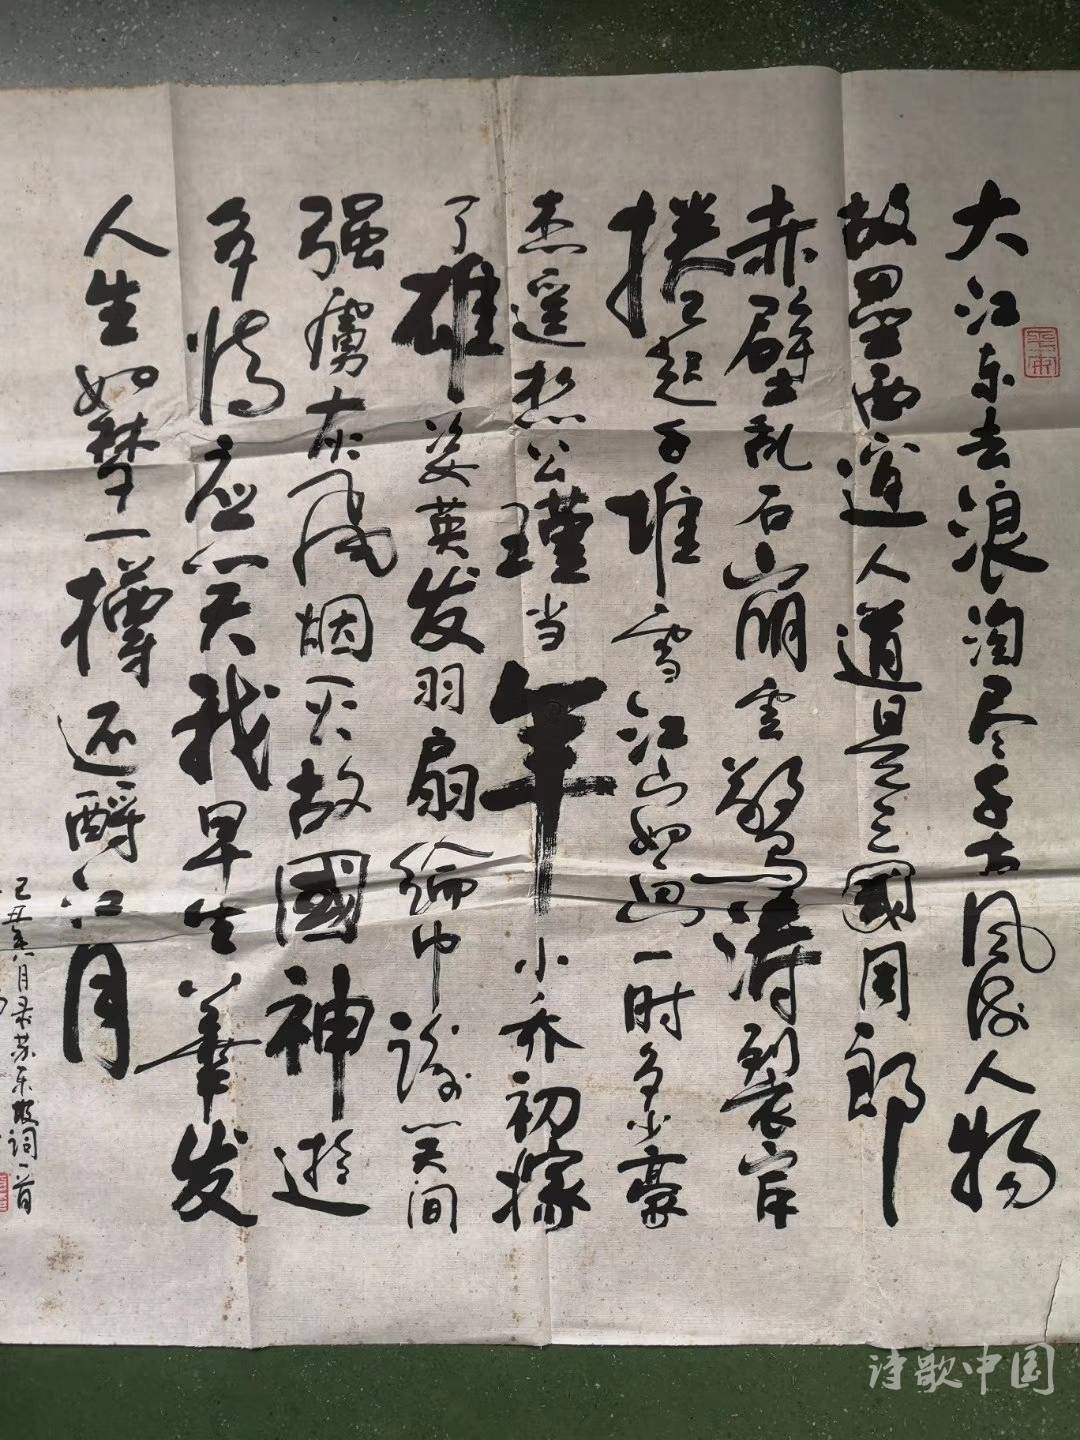 大江东去浪淘尽千古风流人物
故壘西邊人道是三國周郎
赤壁乱石崩雲驚濤裂岸
捲起千堆雪江山如画一时多少豪
杰遥想公瑾当年小乔初嫁
了雄姿英发羽扇綸巾談笑间
强虜灰飞烟灭故國神遊
多情应笑我早生華发
人生如梦一樽还酹江月
己丑年八月录苏东坡词一首
诗歌中国